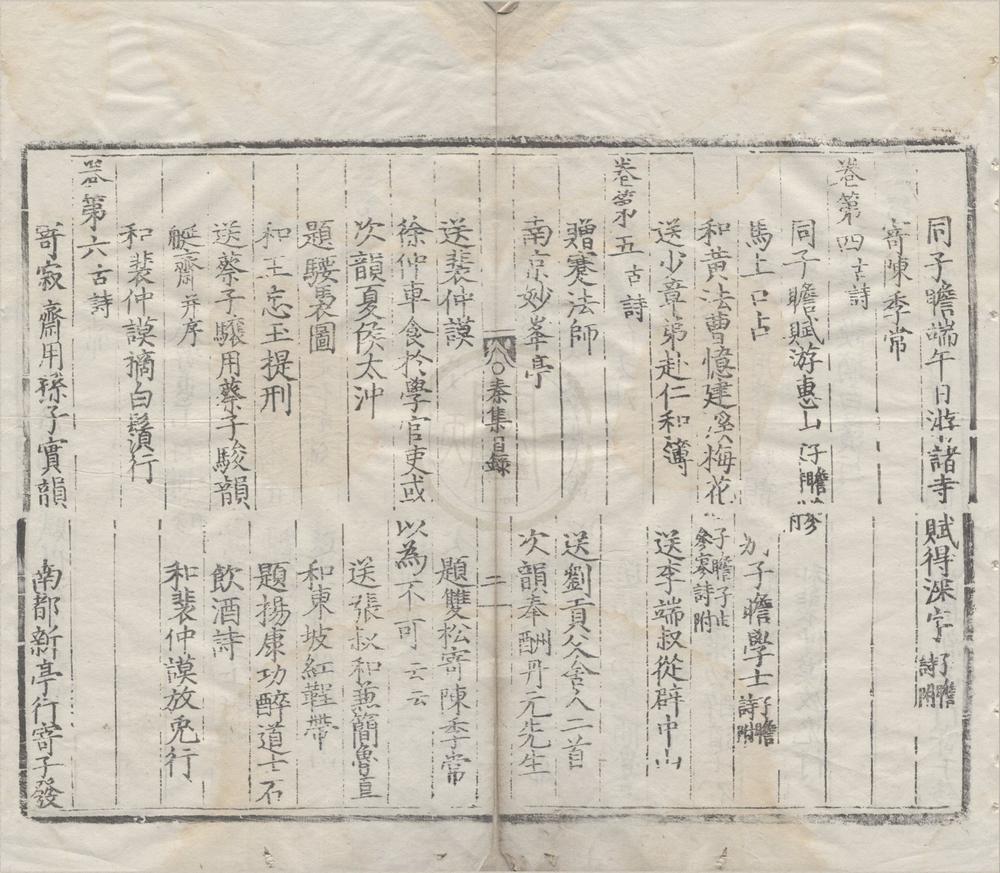 同子瞻端午日游諸寺賦得深字子瞻詩附
寄陳季常
卷第四古詩
同子瞻賦游惠山子瞻詩附
馬上口占
別子瞻學士子瞻詩附
和黃法曹憶建溪梅花子瞻子由參寥詩附
送少章弟赴仁和簿
送李端叔從辟中山
卷第五古詩
贈蹇法師
送劉貢父舍人二首
南京妙峯亭
次韻奉酬丹元先生
秦集目錄
二
送裴仲謨
題雙松寄陳季常
徐仲車食於學官吏或以為不可云云
次韻夏侯太沖
送張叔和兼簡魯直
題騕褭圖
和東坡紅鞓帶
和王忘玉提刑
題楊康功醉道士石
送蔡子驤用蔡子駿韻
飲酒詩
艇齋并序
和裴仲謨放兎行
和裴仲謨摘白鬚行
卷第六古詩
寄寂齋用孫子實韻
南都新亭行寄子發